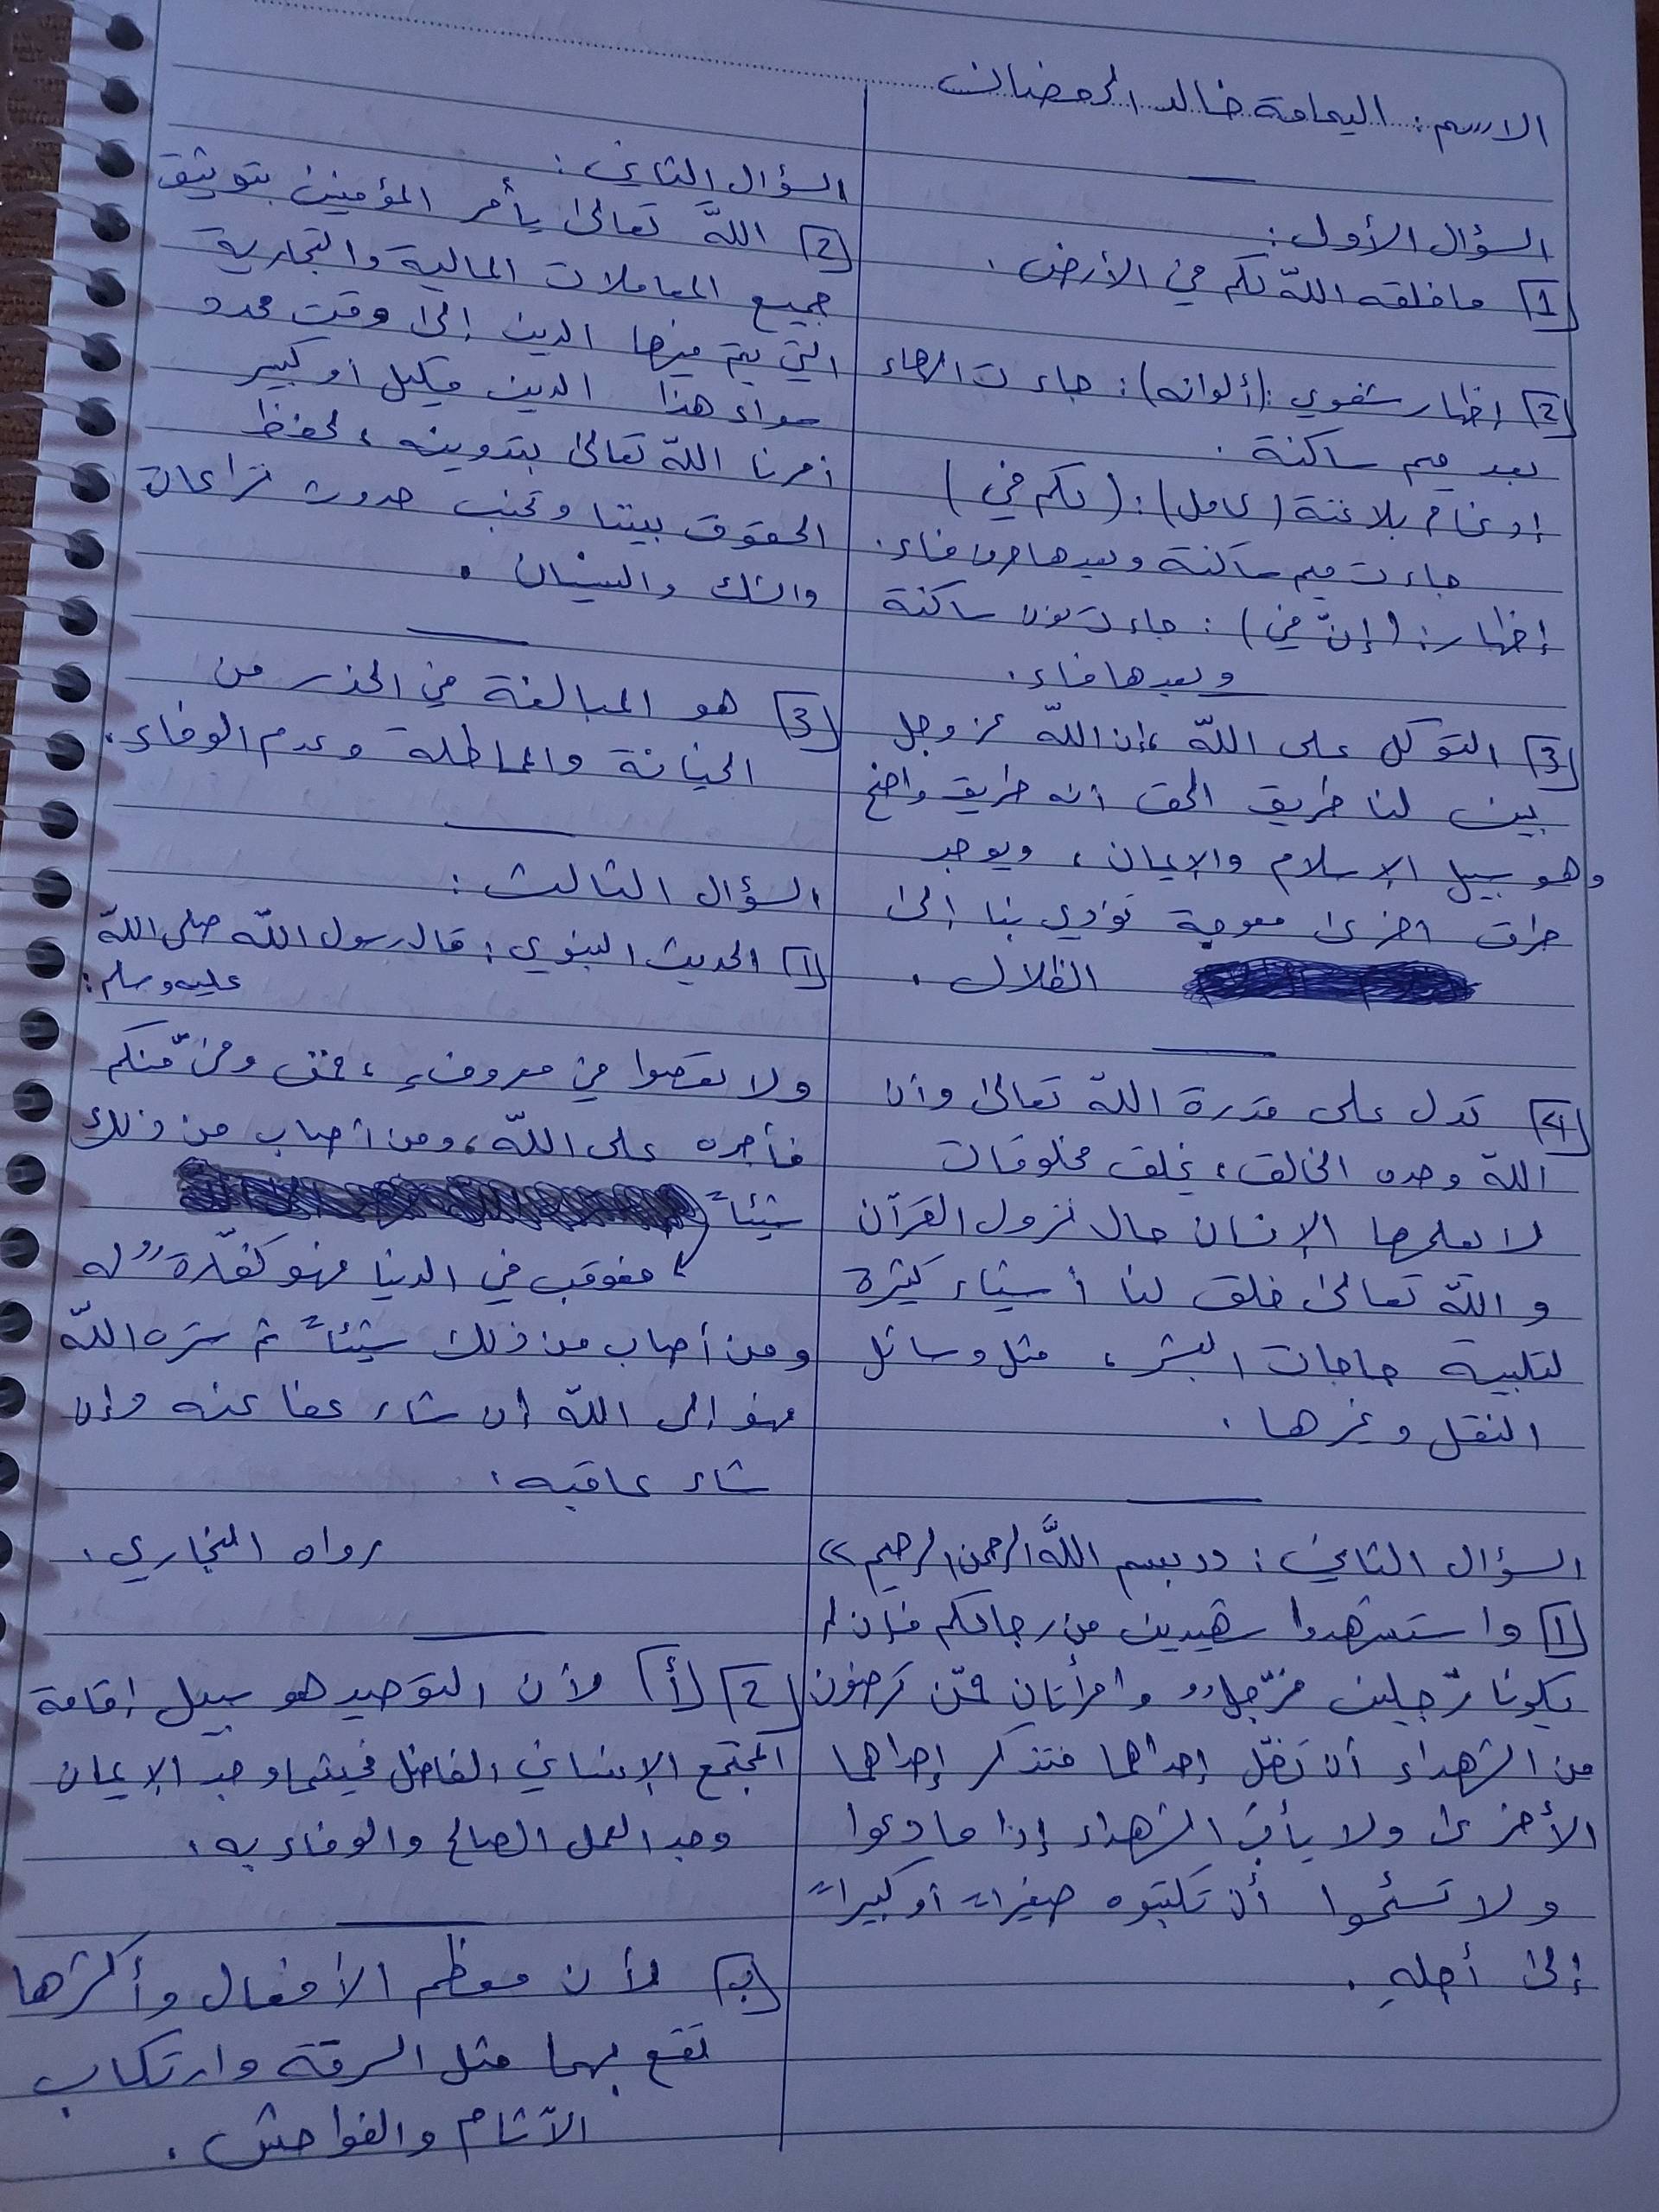 الاسم: اليمامة خالد الرمضان
السؤال الأول:
1 ما خلقه اللّه لكم في الأرض.
2 إظهار شفوي: (ألوانه): جاءت الهاء
بعد ميم ساكنة.
إدغام بلا غنة (كامل): (لكم في)
جاءت ميم ساكنة وبعدها حرف فاء.
إظهار: (إنّ في): جاءت نون ساكنة
وبعدها فاء.
3 التوكل على اللّه، إن اللّه عز وجل
بين لنا طريق الحق أنه طريق واضح
وهو سبيل الإسلام والإيمان، ويوجد
طرق اخرى معوجة تؤدي بنا إلى
الظلال.
4 تدل على قدرة اللّه تعالى وأن
اللّه وحده الخالق، يخلق مخلوقات
لا يعلمها الإنسان حال نزول القرآن
و اللّه تعالى خلق لنا أشياء كثيرة
لتلبية حاجات البشر، مثل وسائل
النقل وغيرها.
السؤال الثاني: وو بسم اللَّه الرحمن الرحيم >>
1 وا ستشهدوا شهيدين من رجالكم فإن لم
يكونا رّجلين فرّجل وامرأتان ممّن ترضون
من الشهداء أن تضلّ إحداهما فتذكر إحداهما
الأخرى ولا يأب الشهداء إذا ما دعوا
ولا تسئموا أن تكتبوه صغيراً أو كبيراً
إلى أجله.
السؤال الثاني:
2 اللّه تعالى يأمر المؤمنين بتوثيق
جميع المعاملات المالية والتجارية
التي يتم فيها الدين إلى وقت محدد
سواء هذا الدين قليل أو كبير
أمرنا اللّه تعالى بتدوينه، لحفظ
الحقوق بيننا وتجنب حدوث نزاعات
والشك والنسيان.
3 هو المبالغة في الحذر من
الخيانة والمماطلة وعدم الوفاء.
السؤال الثالث:
1 الحديث النبوي: قال رسول اللّه صلى اللّه
عليه وسلم:
ولا تعصوا في معروفٍ، فمن وفى منكم
فأجره على اللّه، ومن أصاب من ذلك
شيئاً
فعوقب في الدنيا فهو كفّارة له
ومن أصاب من ذلك شيئاً ثم ستره اللّه
فهو إلى اللّه إن شاء عفا عنه وإن
شاء عاقبه.
رواه البخاري.
2 أ) لأن التوحيد هو سبيل إقامة
المجتمع الإنساني الفاضل فحيثما وجد الإيمان
وجد العمل الصالح والوفاء به.
ب) لأن معظم الأفعال وأكثرها
تقع بهما مثل السرقة وارتكاب
الآثام والفواحش.